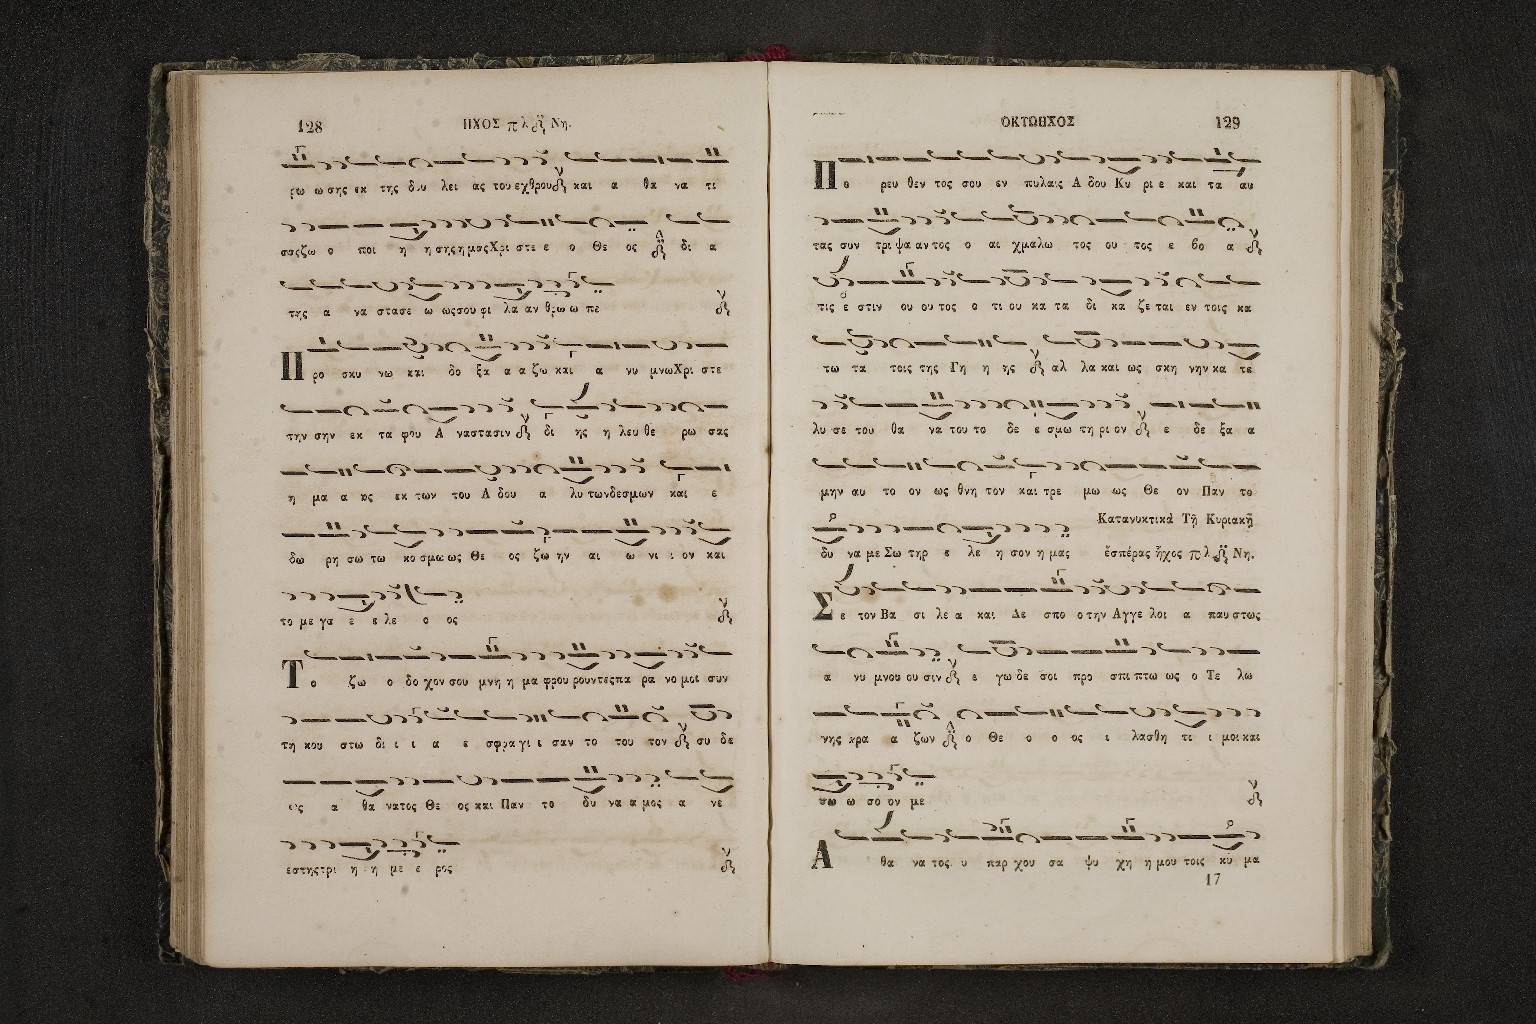 128 ΗΧΟΣ πλ Νη.
ρω ω σης εκ της δου λει ας του εχθρου και α θα να τι
σας ζω ο ποι η η σης η μας Χρι στε ε ο Θε ος δι α
της α να στασε ω ως σου φι λα αν θρω ω πε
Προ σκυ νω και δο ξα α α ζω και α νυ μνω Χρι στε
την σην εκ τα φου Α ναστασιν δι ης η λευ θε ρω σας
η μα α ας εκ των του Α δου α λυ των δεσμων και ε
δω ρη σω τω κο σμω ως Θε ος ζω ην αι ω νι ι ον και
το με γα ε ε λε ο ος
Το ζω ο δο χον σου μνη η μα φρου ρουντες πα ρα νο μοι συν
τη κου στω δι ι ι α ε σφρα γι ι σαν το του τον συ δε
ως α θα νατος Θε ος και Παν το δυ να α μος α νε
εστης τρι η η με ε ρος
ΟΚΤΩΗΧΟΣ 129
Πο ρευ θεν τος σου εν πυλαις Α δου Κυ ρι ε και τα αυ
τας συν τρι ψα αν τος ο αι χμαλω τος ου τος ε βο α
τις ε στιν ου ου τος ο τι ου κα τα δι κα ζε ται εν τοις κα
τω τα τοις της Γη η ης αλ λα και ως σκη νην κα τε
λυ σε του θα να του το δε ε σμω τη ρι ον ε δε ξα α
μην αυ το ον ως θνη τον και τρε μω ως Θε ον Παν το
δυ να με Σω τηρ ε λε η σον η μας
Κατανυκτικά Τῇ Κυριακῇ
ἑσπέρας ἦχος πλ Νη.
Σε τον Βα σι λε α και Δε σπο ο την Αγγε λοι α παυ στως
α νυ μνου ου σιν ε γω δε σοι προ σπι πτω ως ο Τε λω
νης κρα α ζων ο Θε ο ο ος ι λασθη τι ι μοι και
σω ω σο ον με
Α θα να τος υ παρ χου σα ψυ χη η μου τοις κυ μα
17